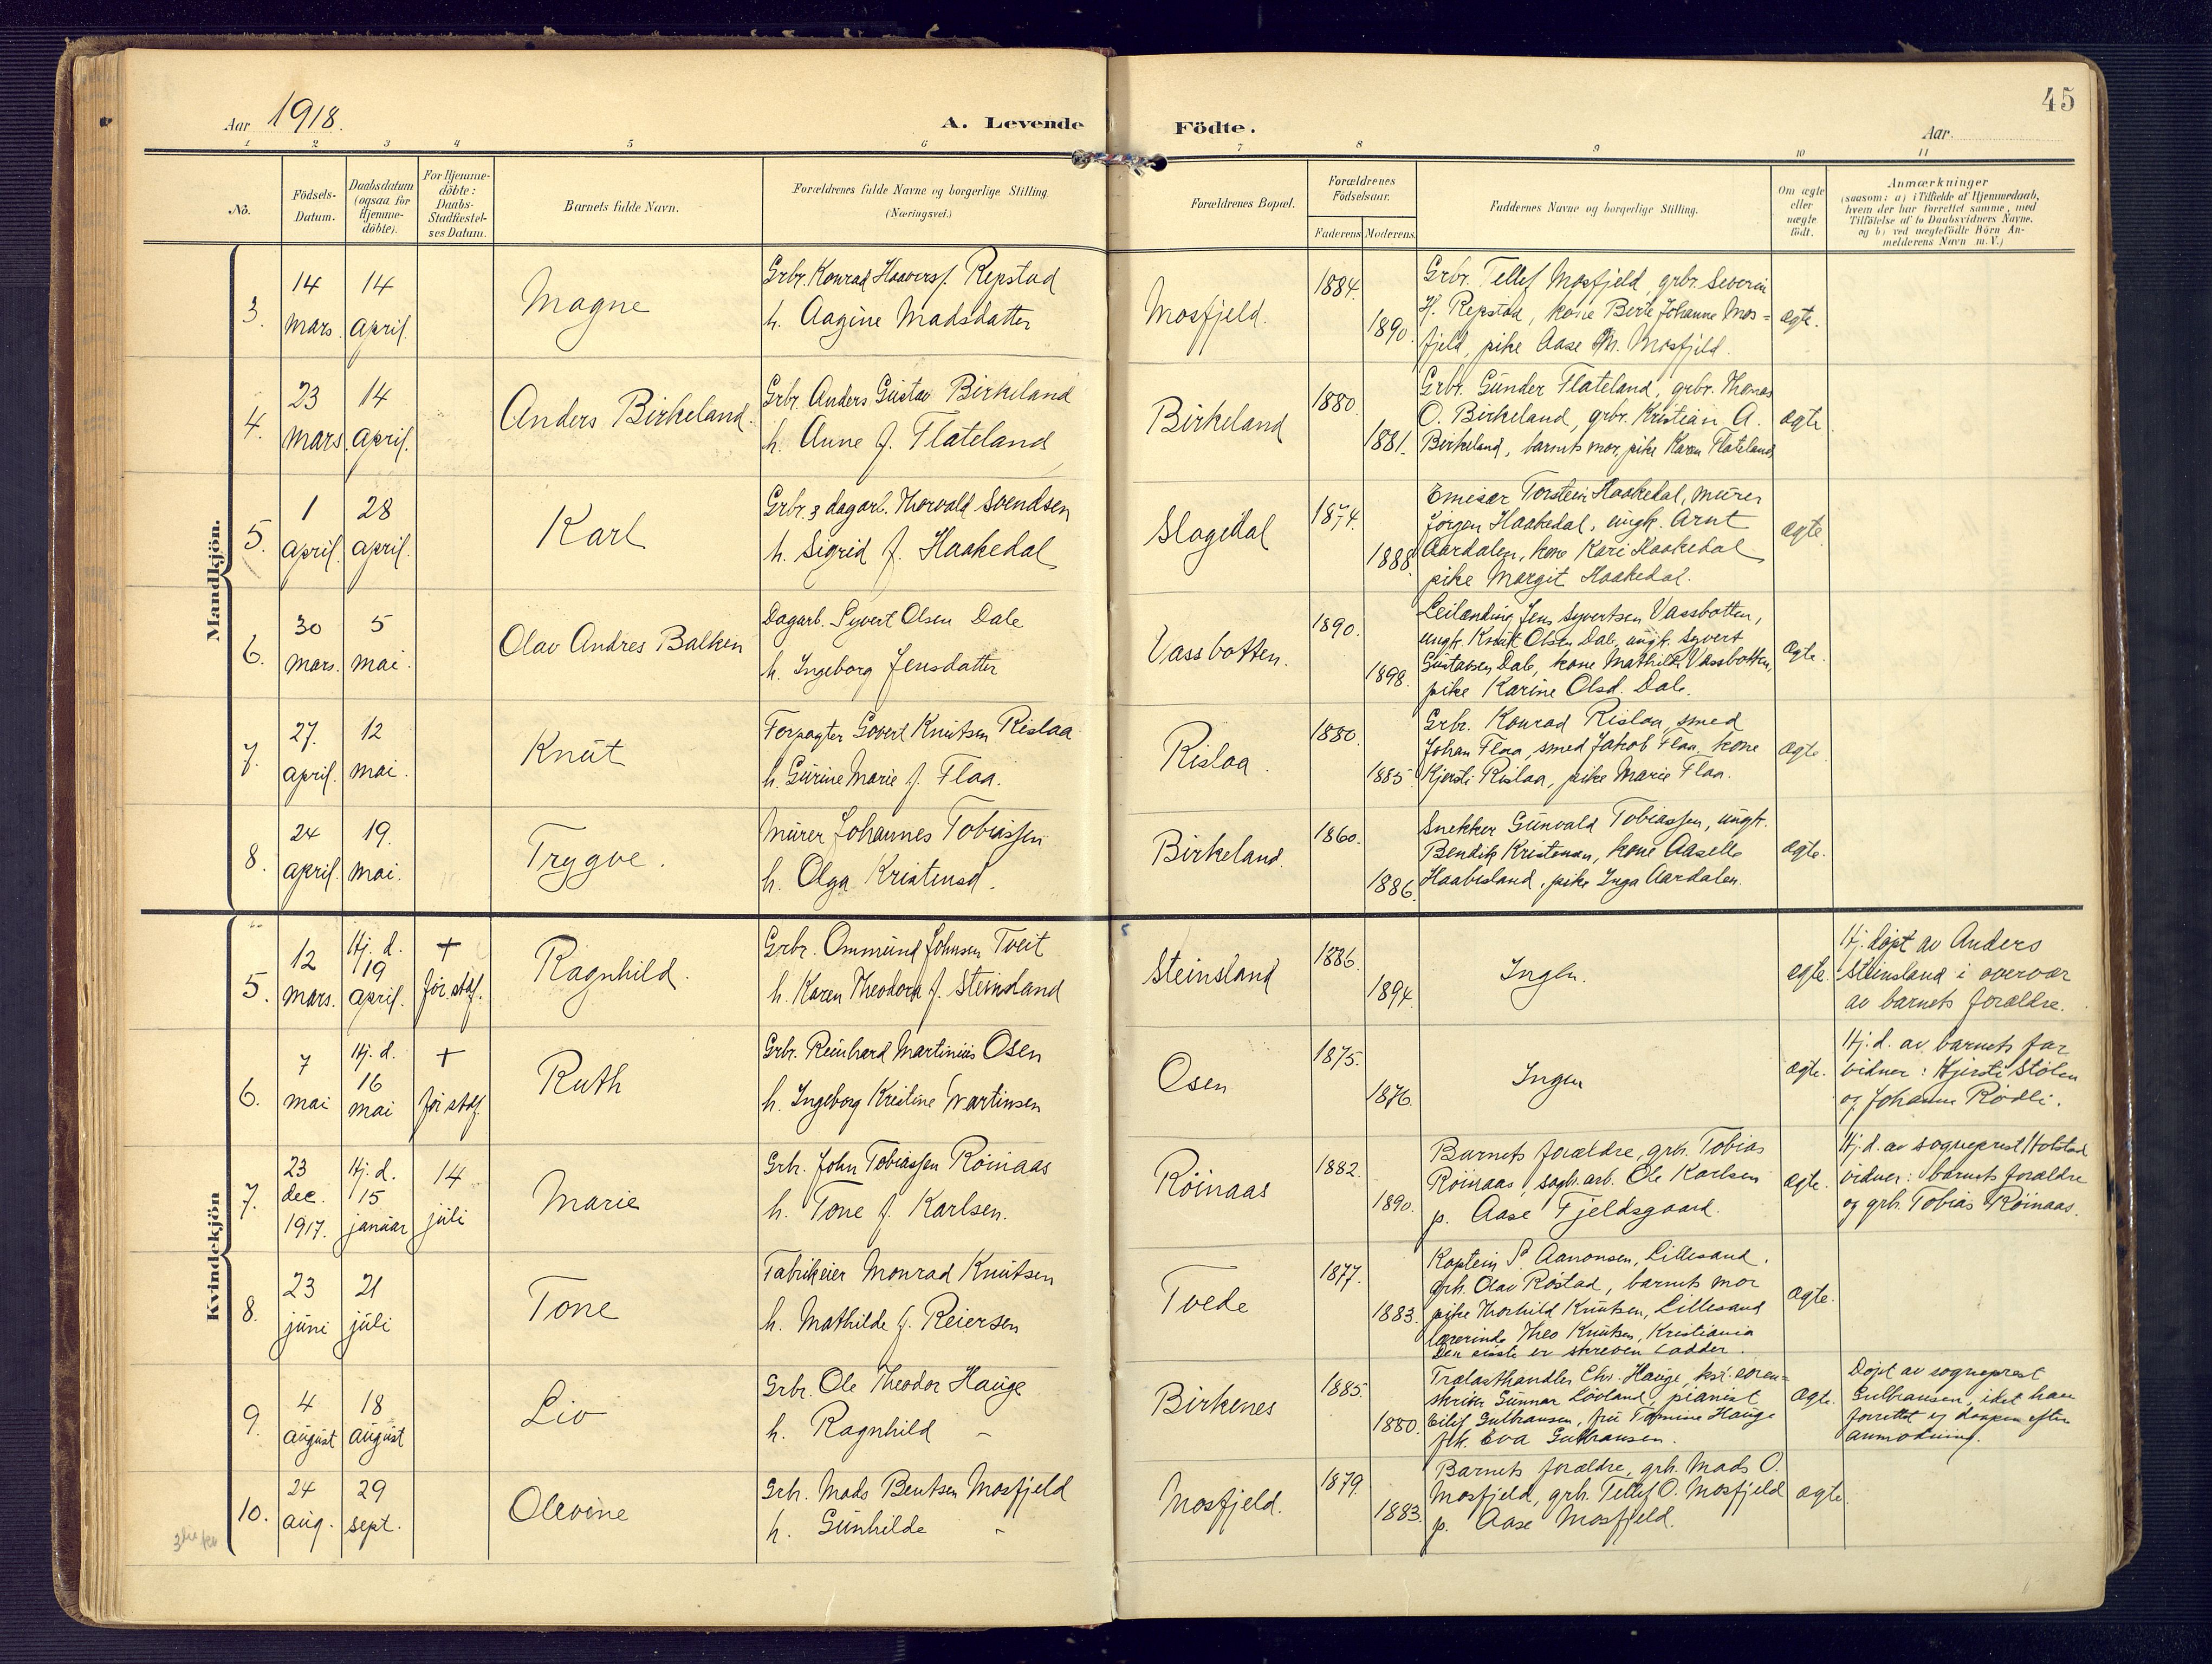 45
Aar 1918.
A. Levende Födte.
Aar
1 2 3 4 5 6 7 8 9 10 11
No.
Födsels-
Datum.
Daabsdatum
(ogsaa for
Hjemme-
döbte).
For Hjemme-
döbte:
Daabs-
Stadfæstel-
ses Datum.
Barnets fulde Navn.
Forældrenes fulde Navne og borgerlige Stilling
(Næringsvei.)
Forældrenes Bopæl.
Forældrenes
Födselsaar.
Faderens Moderens.
Faddernes Navne og borgerlige Stilling.
Om ægte
eller
uægte
födt.
Anmærkninger
(saasom: a) i Tilfælde af Hjemmedaab,
hvem der har forrettet samme, med
Tilföielse af to Daabsvidners Navne,
og b) ved uægtefödte Börn An-
melderens Navn m. V.)
Mandkjön.
3.
14
mars.
14
april.
Magne
Grbr. Konrad Haaversj. Repstad
h. Aagine Madsdatter
Mosfjeld.
1884.
1890.
Grbr. Tellef Mosfjeld, grbr. Severin
H. Repstad, kone Berte Johanne Mos=
fjeld, pike Aase M. Mosfjeld.
ægte.
4.
23
mars.
14
april.
Anders Birkeland.
Grbr. Anders Gustav Birkeland
h. Anne f. Flateland
Birkeland
1880.
1881.
Grbr. Gunder Flateland, grbr. Thomas
O. Birkeland, grbr. Kristian A.
Birkeland, barnets mor, pike Karen Flateland
ægte
5.
1
april.
28
april.
Karl
Grbr. & dagarb. Thorvald Svendsen
h. Sigrid f. Haakedal
Slagedal
1874.
1888
Emisær Torstein Haakedal, murer
Jörgen Haakedal, ungk. Arnt
Aardalen, kone Kari Haakedal
pike Margit Haakedal.
ægte.
6.
30
mars.
5
mai.
Olav Andres Balken
Dagarb. Syvert Olsen Dale
h. Ingeborg Jensdatter
Vassbotten.
1890.
1898.
Leilænding Jens Syvertsen Vassbotten,
ungk. Knut Olsen Dale, ungk. Syvert
Gustavsen Dale, kone Mathilde Vassbotten,
pike Karine Olsd. Dale.
ægte.
7.
27.
april.
12
mai.
Knut
Forpagter Govert Knutsen Rislaa
h. Gurine Marie f. Flaa.
Rislaa.
1880.
1885.
Grbr. Konrad Rislaa, smed
Johan Flaa, smed Jakob Flaa, kone
Kjersti Rislaa, pike Marie Flaa.
ægte.
8.
24
april.
19.
mai.
Trygve.
Murer Johannes Tobiassen
h. Olga Kristensd.
Birkeland.
1860.
1886
Snekker Gunvald Tobiassen, ungk.
Bendik Kristensen, kone Aaselle
Haabesland, pike Inga Aardalen.
ægte.
Kvindekjön
5.
12
mars.
Hj. d.
19
april.
+
för stdf.
Ragnhild.
Grbr. Ommund Johnsen Tveit
h. Karen Theodora f. Steinsland
Steinsland
1886.
1894.
Ingen.
ægte.
Hj. döpt av Anders
Steinsland i overvær
av barnets forældre.
6.
7
mai
Hj. d.
16
mai
+
för stdf.
Ruth
Grbr. Reinhard Martinius Osen
h. Ingeborg Kristine Martinsen
Osen
1875.
1876.
Ingen
ægte.
Hj. d. av barnets far
vidner: Kjersti Stölen
og Johanne Rödli.
7.
23
dec.
1917.
Hj. d.
15
januar
14
juli
Marie
Grb. John Tobiassen Röinaas
h. Tone f. Karlsen.
Röinaas
1882.
1890.
Barnets forældre, grb. Tobias
Röinaas, sagb. arb. Ole Karlsen
p. Aase Fjeldsgaard.
ægte.
Hj. d. av sogneprest Holstad
vidner: barnets forældre
og grb. Tobias Röinaas.
8.
23
juni
21
juli
Tone
Fabrikeier Monrad Knutsen
h. Mathilde f. Reiersen
Tvede
1877.
1883.
Kaptein S. Aanonsen, Lillesand.
grb. Olav Röstad, barnets mor
pike Thorhild Knutsen, Lillesand
lærerinde Theo Knutsen, Kristiania
Den sidste er skreven fadder.
ægte.
9.
4
august
18
august
Liv
Grbr. Ole Theodor Hauge
h. Ragnhild -
Birkenes
1885.
1880.
Trælasthandler Chr. Hauge, kst. soren=
skriver Gunnar Lövland, pianist
Eilif Gulbransen, fru Tomine Hauge
frk. Eva Gulbransen.
ægte.
Döpt av sogneprest
Gulbransen, idet han
forrettet ej daapen efter
anmodning.
10.
24
aug.
29
sept.
Olevine
Grb. Mads Bentsen Mosfjeld
h. Gunhilde -
Mosfjeld.
1879.
1883.
Barnets forældre, grb. Mads O.
Mosfjeld, grb. Tellef O. Mosfjeld
p. Aase Mosfjeld.
ægte.